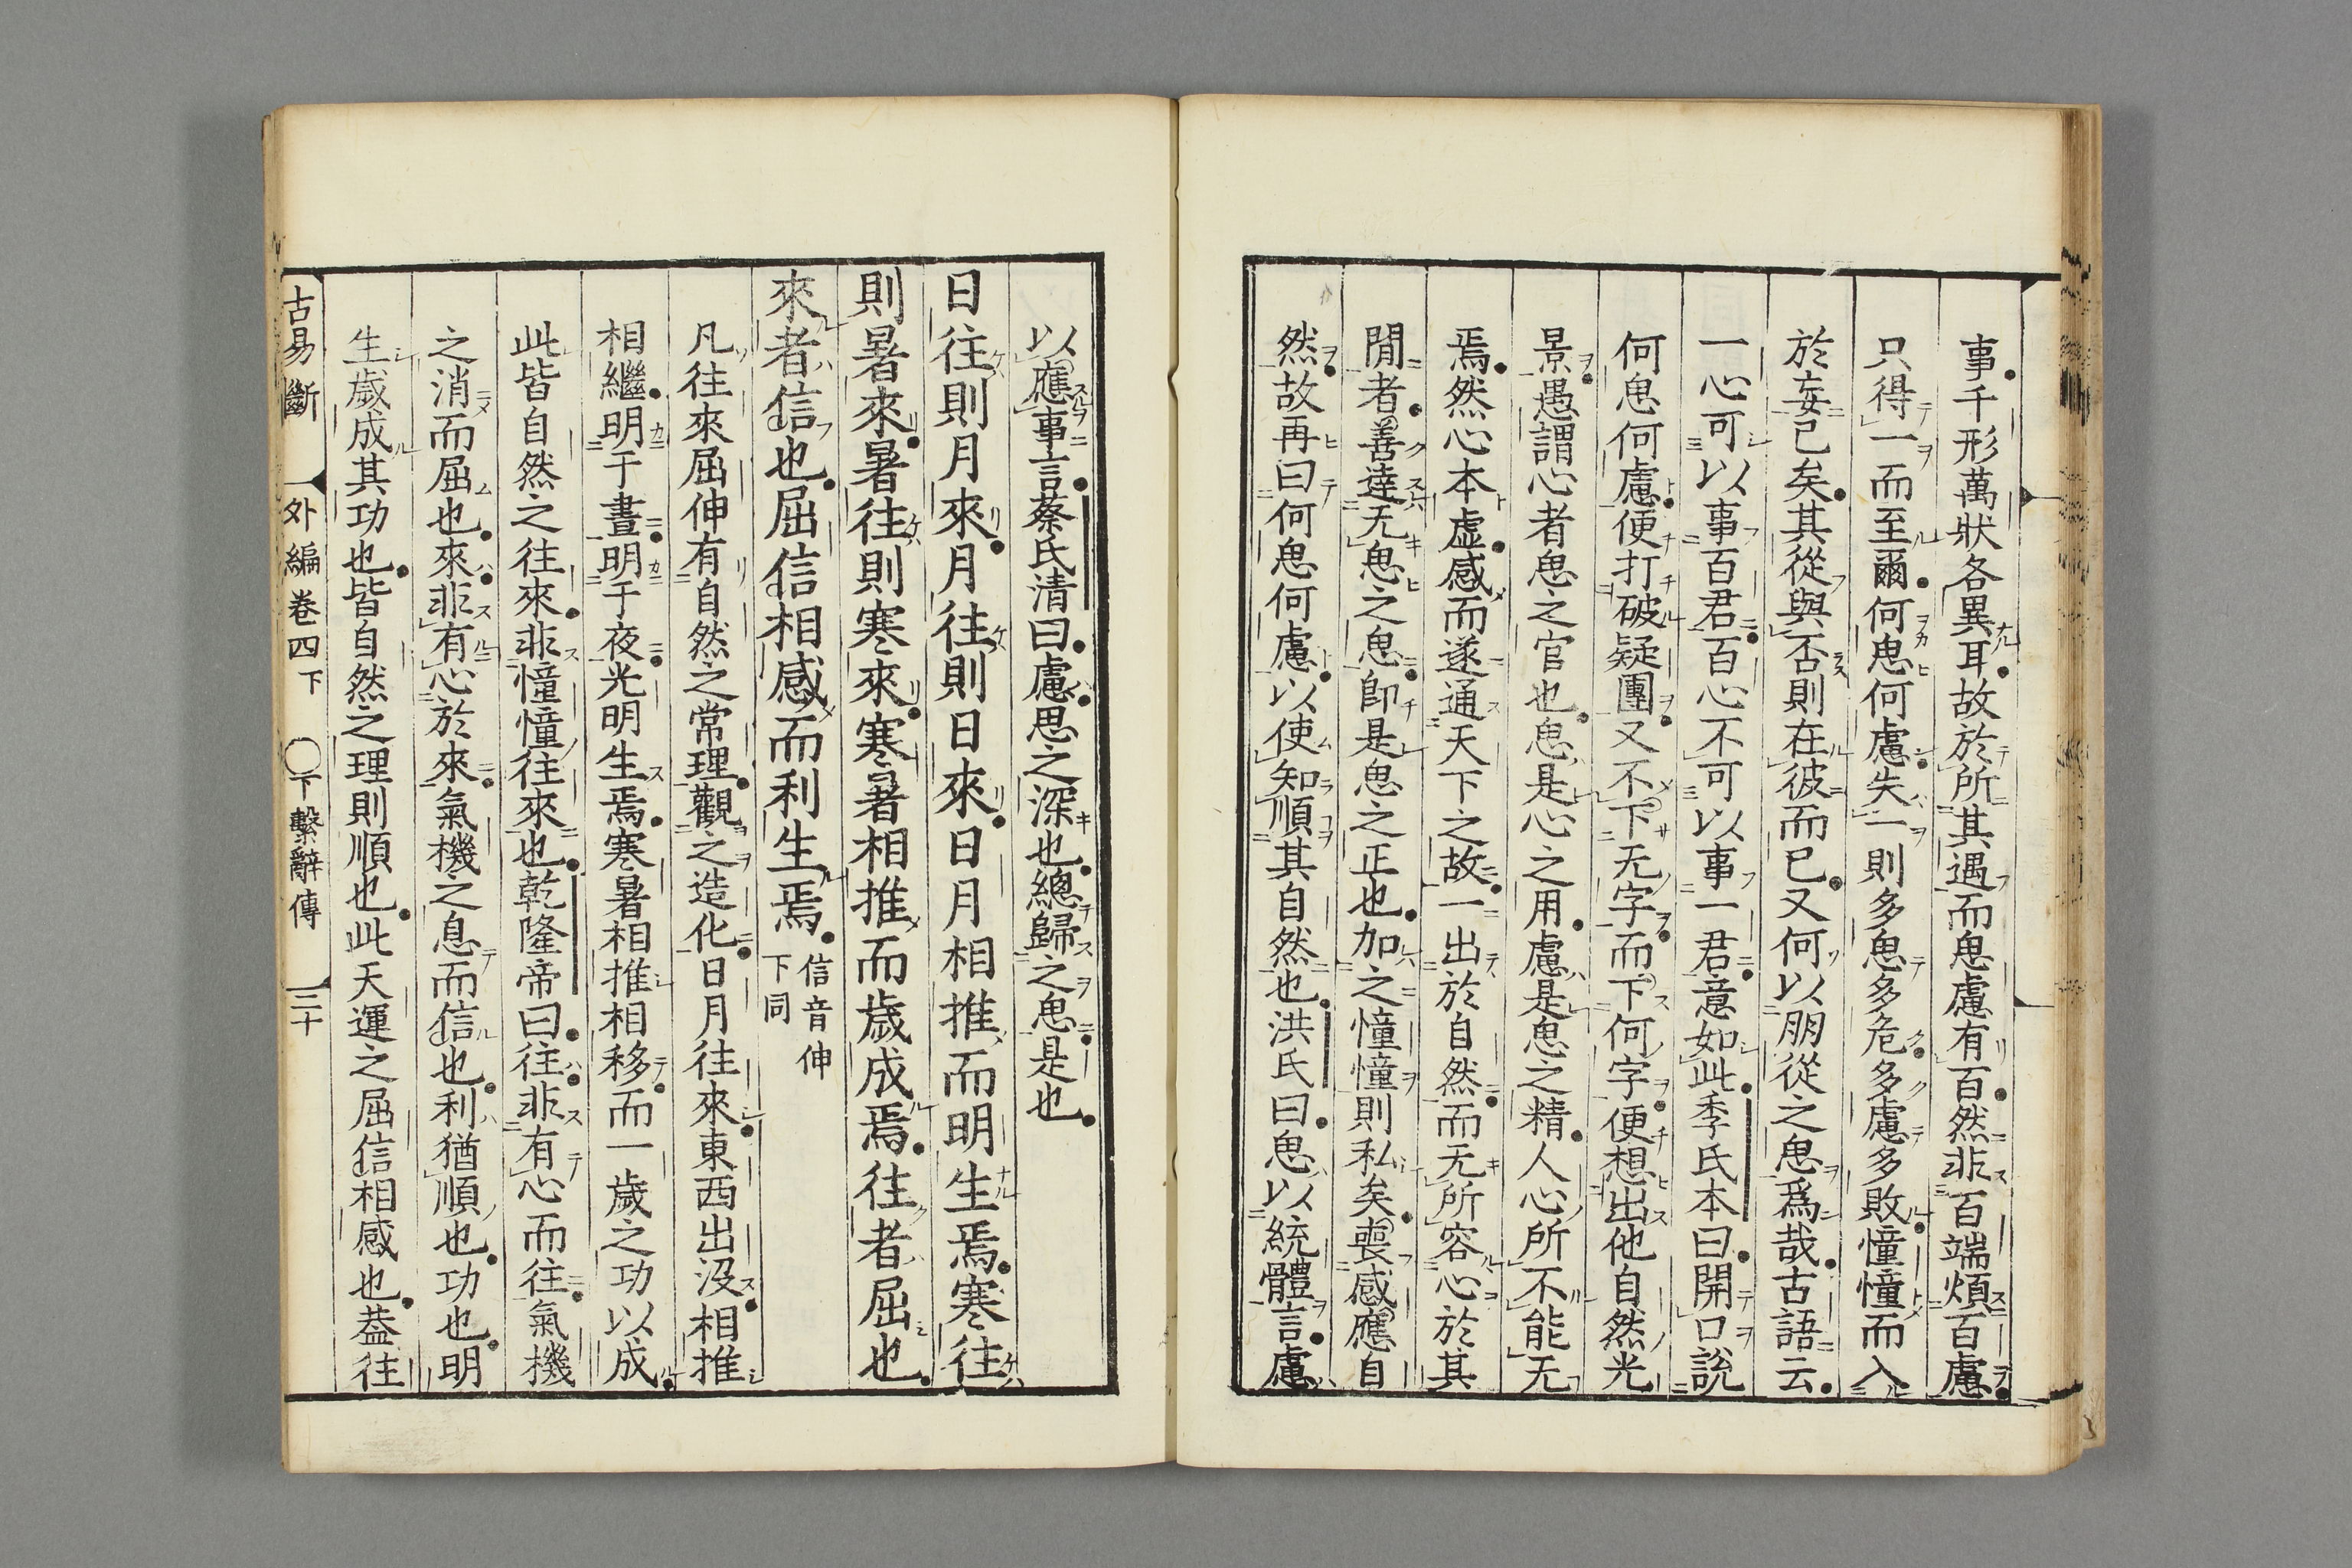 事千形萬狀各異耳故於所其遇而思慮有百然非百端煩百慮
只得一而至爾何思何慮失一則多思多危多慮多敗憧憧而入
於妄已矣其從與否則在彼而已又何以朋從之思爲哉古語云
一心可以事百君百心不可以事一君意如此季氏本曰開口說
何思何慮便打破疑團又不下无字而下何字便想出他自然光
景愚謂心者思之官也思是心之用慮是思之精人心所不能无
焉然心本虛感而遂通天下之故一出於自然而无所容心於其
閒者善達无思之思卽是思之正也加之憧憧則私矣喪感應自
然故再曰何思何慮以使知順其自然也洪氏曰思以統體言慮
以應事言蔡氏清曰慮思之深也總歸之思是也
日往則月來月往則日來日月相推而明生焉寒往
則暑來暑往則寒來寒暑相推而歲成焉往者屈也
來者信也屈信相感而利生焉信音伸下同
凡往來屈伸有自然之常理觀之造化日月往來東西出沒相推
相繼明于晝明于夜光明生焉寒暑相推相移而一歲之功以成
此皆自然之往來非憧憧往來也乾隆帝曰往非有心而往氣機
之消而屈也來非有心於來氣機之息而信也利猶順也功也明
生歲成其功也皆自然之理則順也此天運之屈信相感也蓋往
古易斷　外編卷四下　〇下繫辭傳　三十